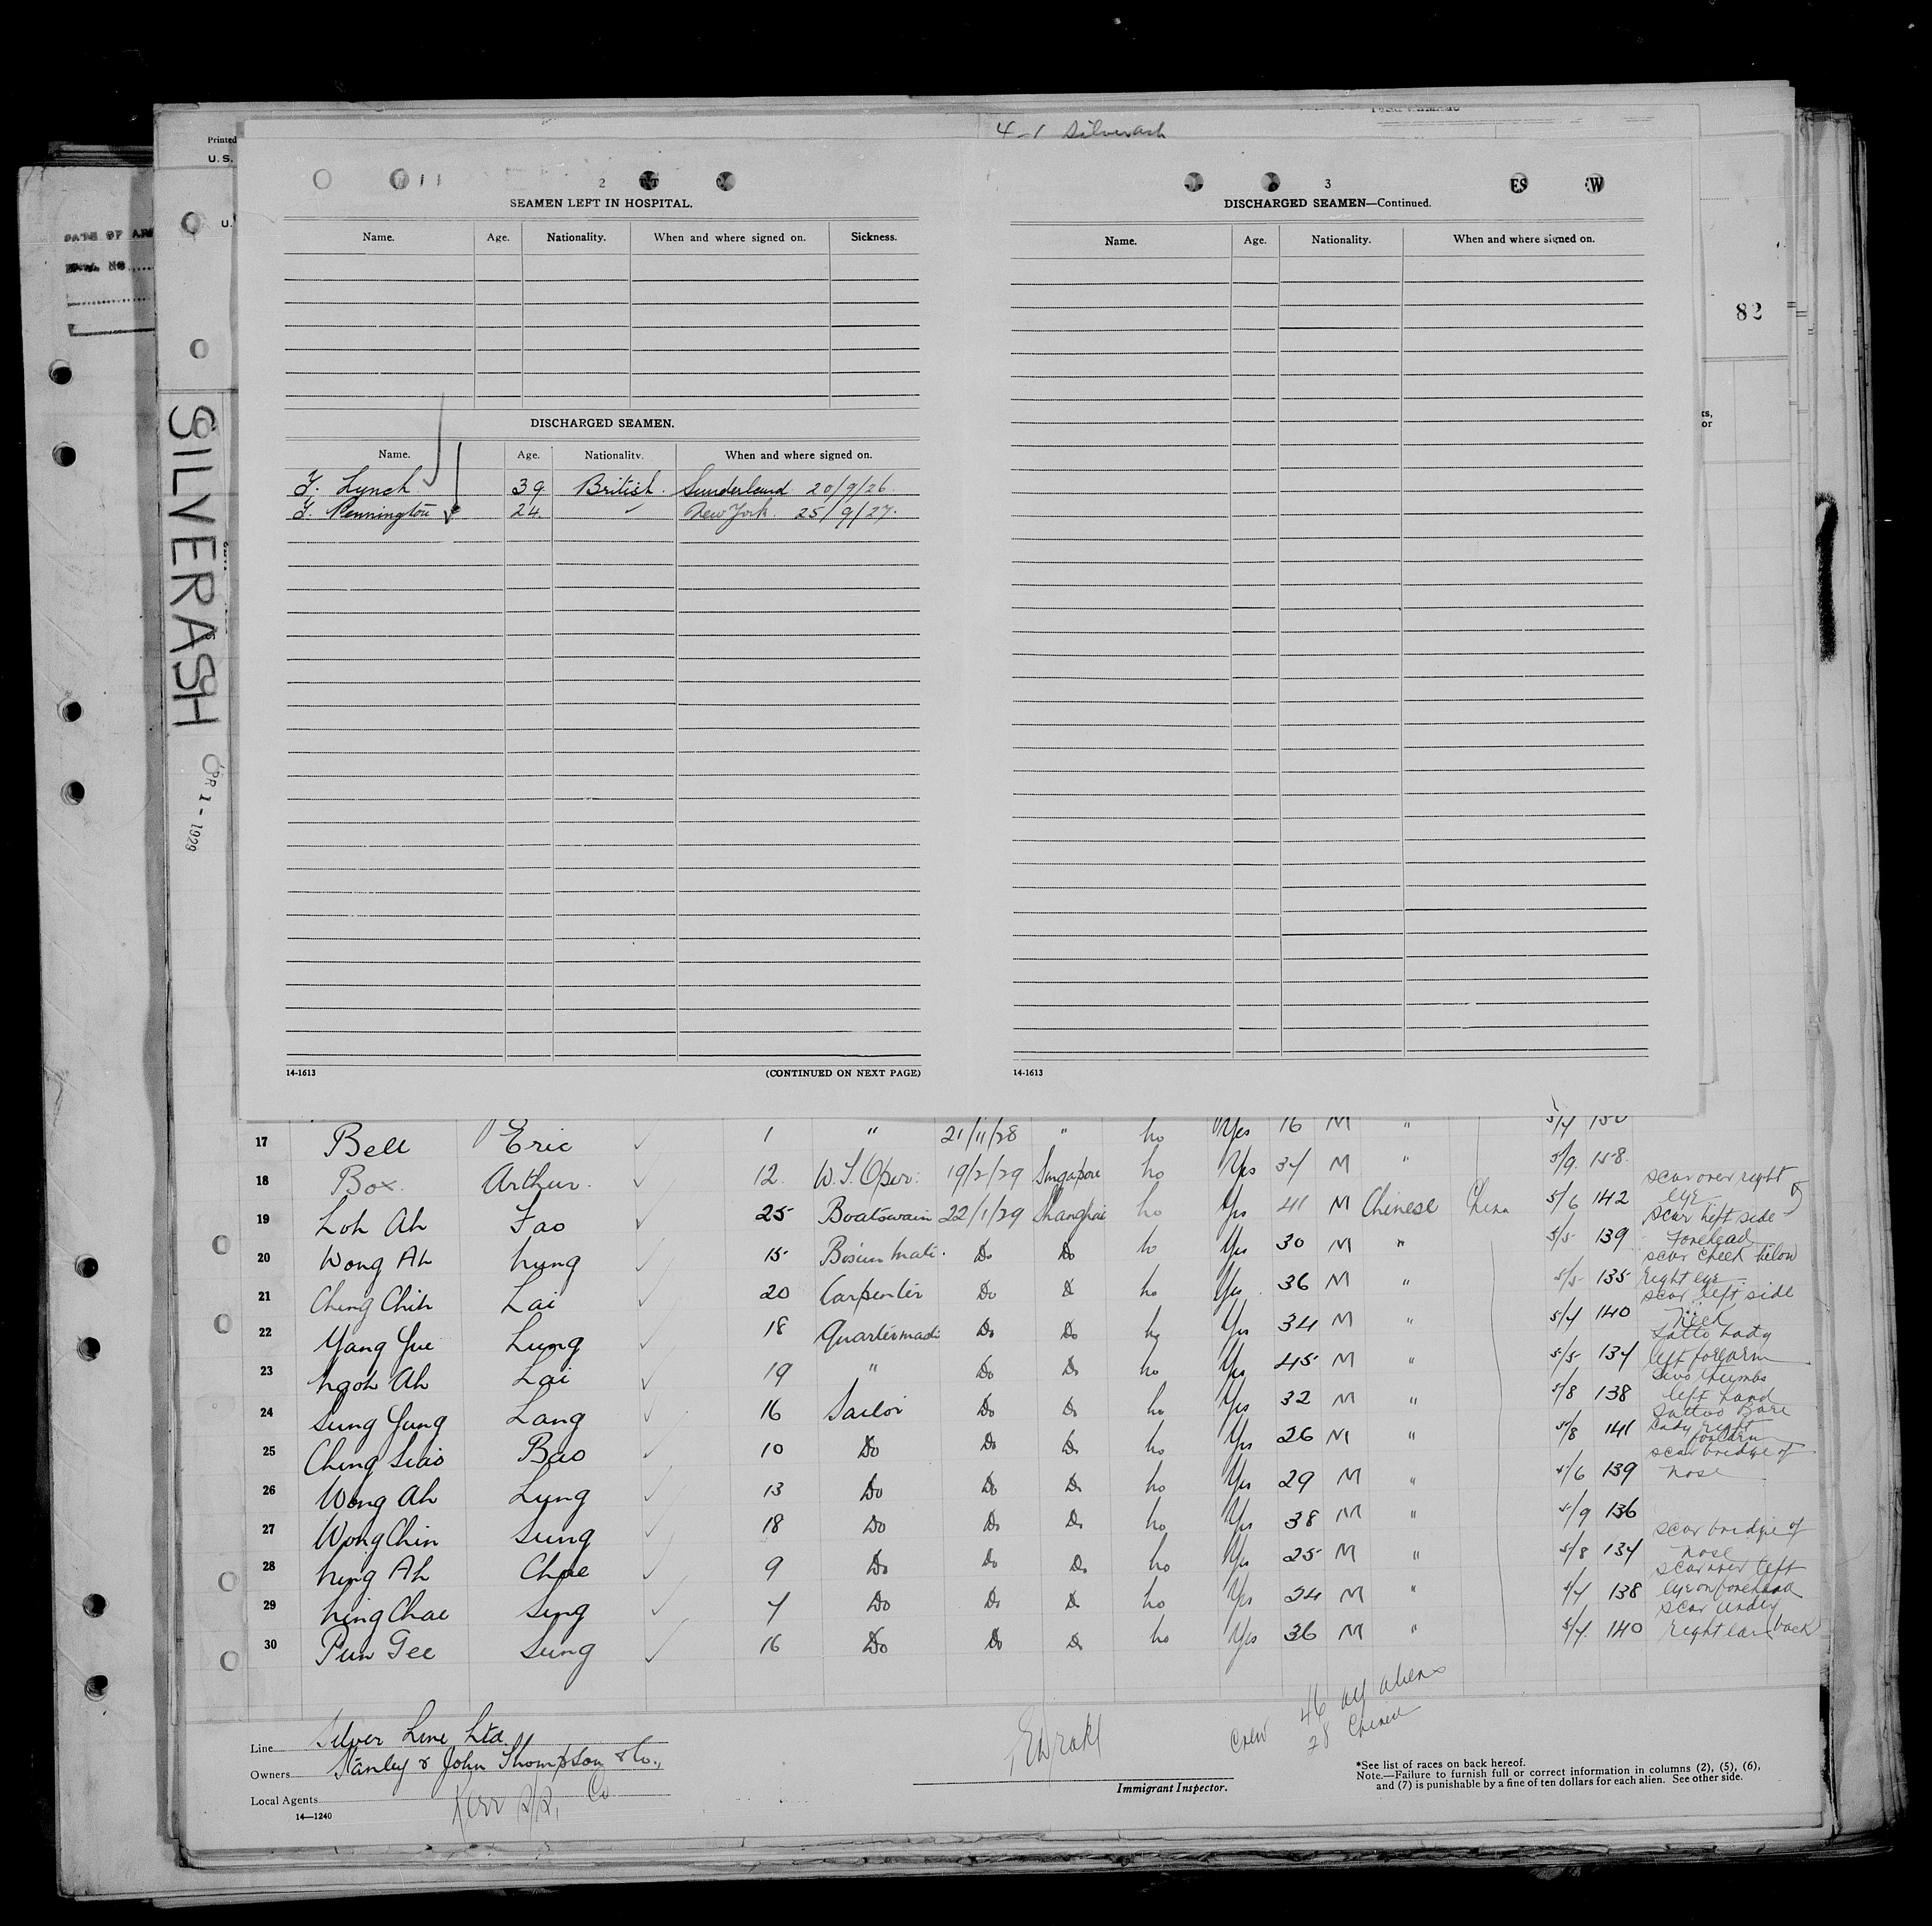 4-1 Silverash
Printed
U. S.
U.
DATE OF ARR
SILVERASH
APR 1 - 1929
82
2
SEAMEN LEFT IN HOSPITAL.
Name. Age. Nationality. When and where signed on. Sickness.
DISCHARGED SEAMEN.
Name. Age. Nationality. When and where signed on.
Lynch 39 British. Sunderland 20/9/26.
Pennington 24. " New York. 25/9/27.
14-1613 (CONTINUED ON NEXT PAGE)
3
DISCHARGED SEAMEN—Continued.
Name. Age. Nationality. When and where signed on.
14-1613
17 Bell Eric 1 " 21/11/28 " no Yes 16 M "
18 Box. Arthur. 12. W.T. Oper. 19/2/29 Singapore no Yes M " 5/9. 158.
19 Loh Ah Fao 25 Boatswain 22/1/29 Shanghai no Yes 41 M Chinese China 5/6 142 scar over right eye
20 Wong Ah 15 Bosun Mate. Do Do no Yes 30 M " 5/5 139 scar left side forehead
21 Ching Chih Lai 20 Carpenter Do Do no Yes 36 M " 5/5 135 scar cheek below right eye
22 Yang Yue Lung 18 Quartermaster Do Do no Yes 34 M " 140 scar left side neck
23 Ngoh Ah Lai 19 " Do Do no Yes 45 M " 5/5 134 left forearm
24 Sung Yung Lang 16 Sailor Do Do no Yes 32 M " 5/8 138 two thumbs left hand
25 Ching Siao Bao 10 Do Do Do no Yes 26 M " 5/8 141 lady right forearm
26 Wong Ah Lung 13 Do Do Do no Yes 29 M " 5/6 139 scar bridge of nose
27 Wong Chin Sung 18 Do Do Do no Yes 38 M " 5/9 136
28 Ning Ah Chae 9 Do Do Do no Yes 25 M " 5/8 134 scar bridge of nose
29 Ning Chae Sing Do Do Do no Yes 24 M " 138 scar over left eye on forehead
30 Pun Gee Sung 16 Do Do Do no Yes 36 M " 140 scar under right ear (back
Line Silver Line Ltd.
Owners Stanley & John Thompson & Co.,
Local Agents Kerr S/S. Co
14—1240
Immigrant Inspector.
Crew 46 all aliens
28 Chinese
*See list of races on back hereof.
Note.—Failure to furnish full or correct information in columns (2), (5), (6),
and (7) is punishable by a fine of ten dollars for each alien. See other side.